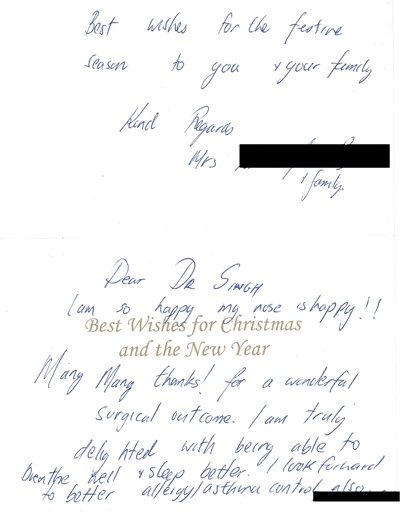 Best wishes for the festive
season to you & your family
Kind Regards
Mrs
& family.
Dear DR SINGH
I am so happy my nose is happy!!
Best Wishes for Christmas
and the New Year
Many Many thanks! for a wonderful
surgical outcome. I am truly
delighted with being able to
breathe well & sleep better. I look forward
to better allergy/asthma control also.